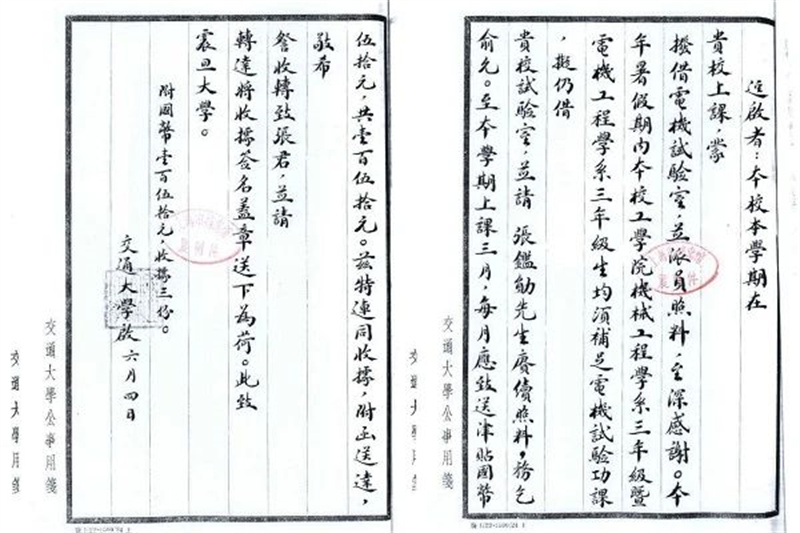 逕啟者：本校本學期在
貴校上課，蒙
撥借電機試驗室，並派員照料，至深感謝。本
年暑假期內本校工學院機械工程學系三年級暨
電機工程學系三年級生均須補足電機試驗功課
，擬仍借
貴校試驗室，並請 張鑑劬先生賡續照料，務乞
俞允。至本學期上課三月，每月應致送津貼國幣
交通大學公事用箋
伍拾元，共壹百伍拾元。茲特連同收據，附函送達，
敬希
詧收轉致張君，並請
轉達將收據簽名蓋章送下為荷。此致
震旦大學。
附國幣壹百伍拾元，收據三份。
交通大學啟 六月四日
交通大學公事用箋
交通大學用箋
交通大學用箋